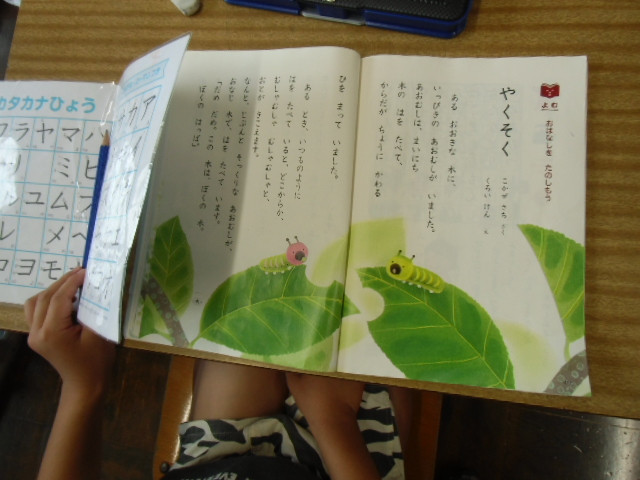 よむ
おはなしを たのしもう
やくそく
こかぜ さち さく
くろい けん え
ある おおきな 木に、
いっぴきの あおむしが いました。
あおむしは、まいにち
木の はを たべて、
からだが ちょうに かわる
ひを まって いました。
ある とき、いつものように
はを たべて いると、どこからか、
むしゃむしゃ むしゃむしゃと、
おとが きこえます。
なんと、じぶんと そっくりな あおむしが、
おなじ 木で、はを たべて います。
「だめ だめ。この 木は、ぼくの 木。
ぼくの はっぱ。」
カタカナひょう
ラヤマハ
リ ミヒ
ルユムフ
レ メヘ
ロヨモホ
カア
イ